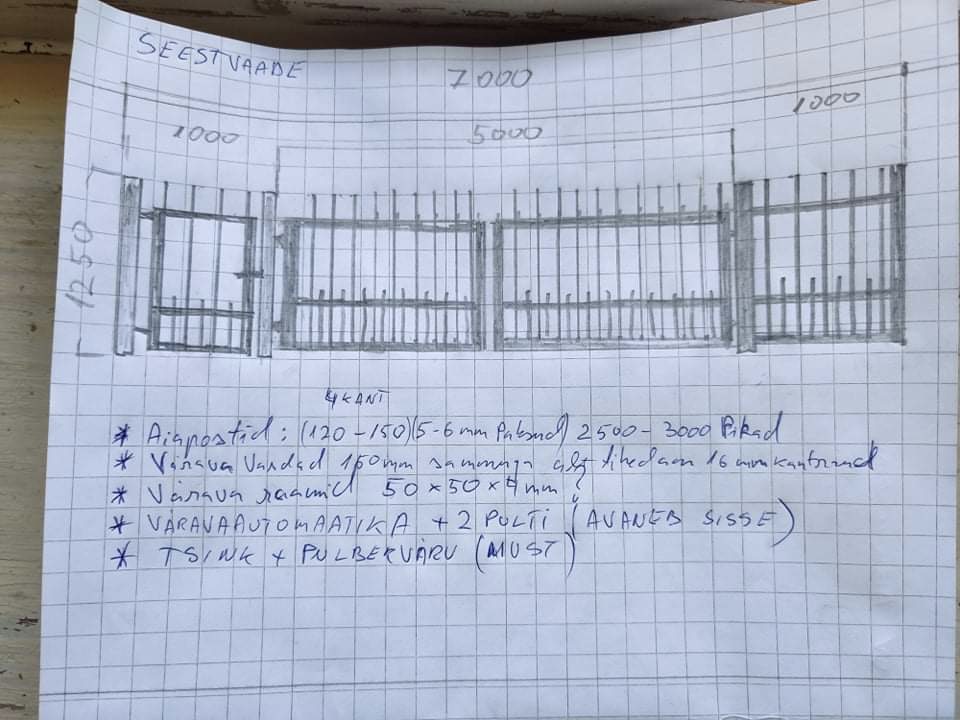 SEESTVAADE
7000
1000
5000
1000
1250
4KANT
* Aiapostid: (120-150)(5-6mm Paksud) 2500-3000 Pikad
* Värava Vardad 150mm sammuga alt tihedam 16mm kantraud
* Värava raamid 50x50x4mm?
* VÄRAVAAUTOMAATIKA + 2 PULTI (AVANEB SISSE)
* TSINK + PULBERVÄRV (MUST)